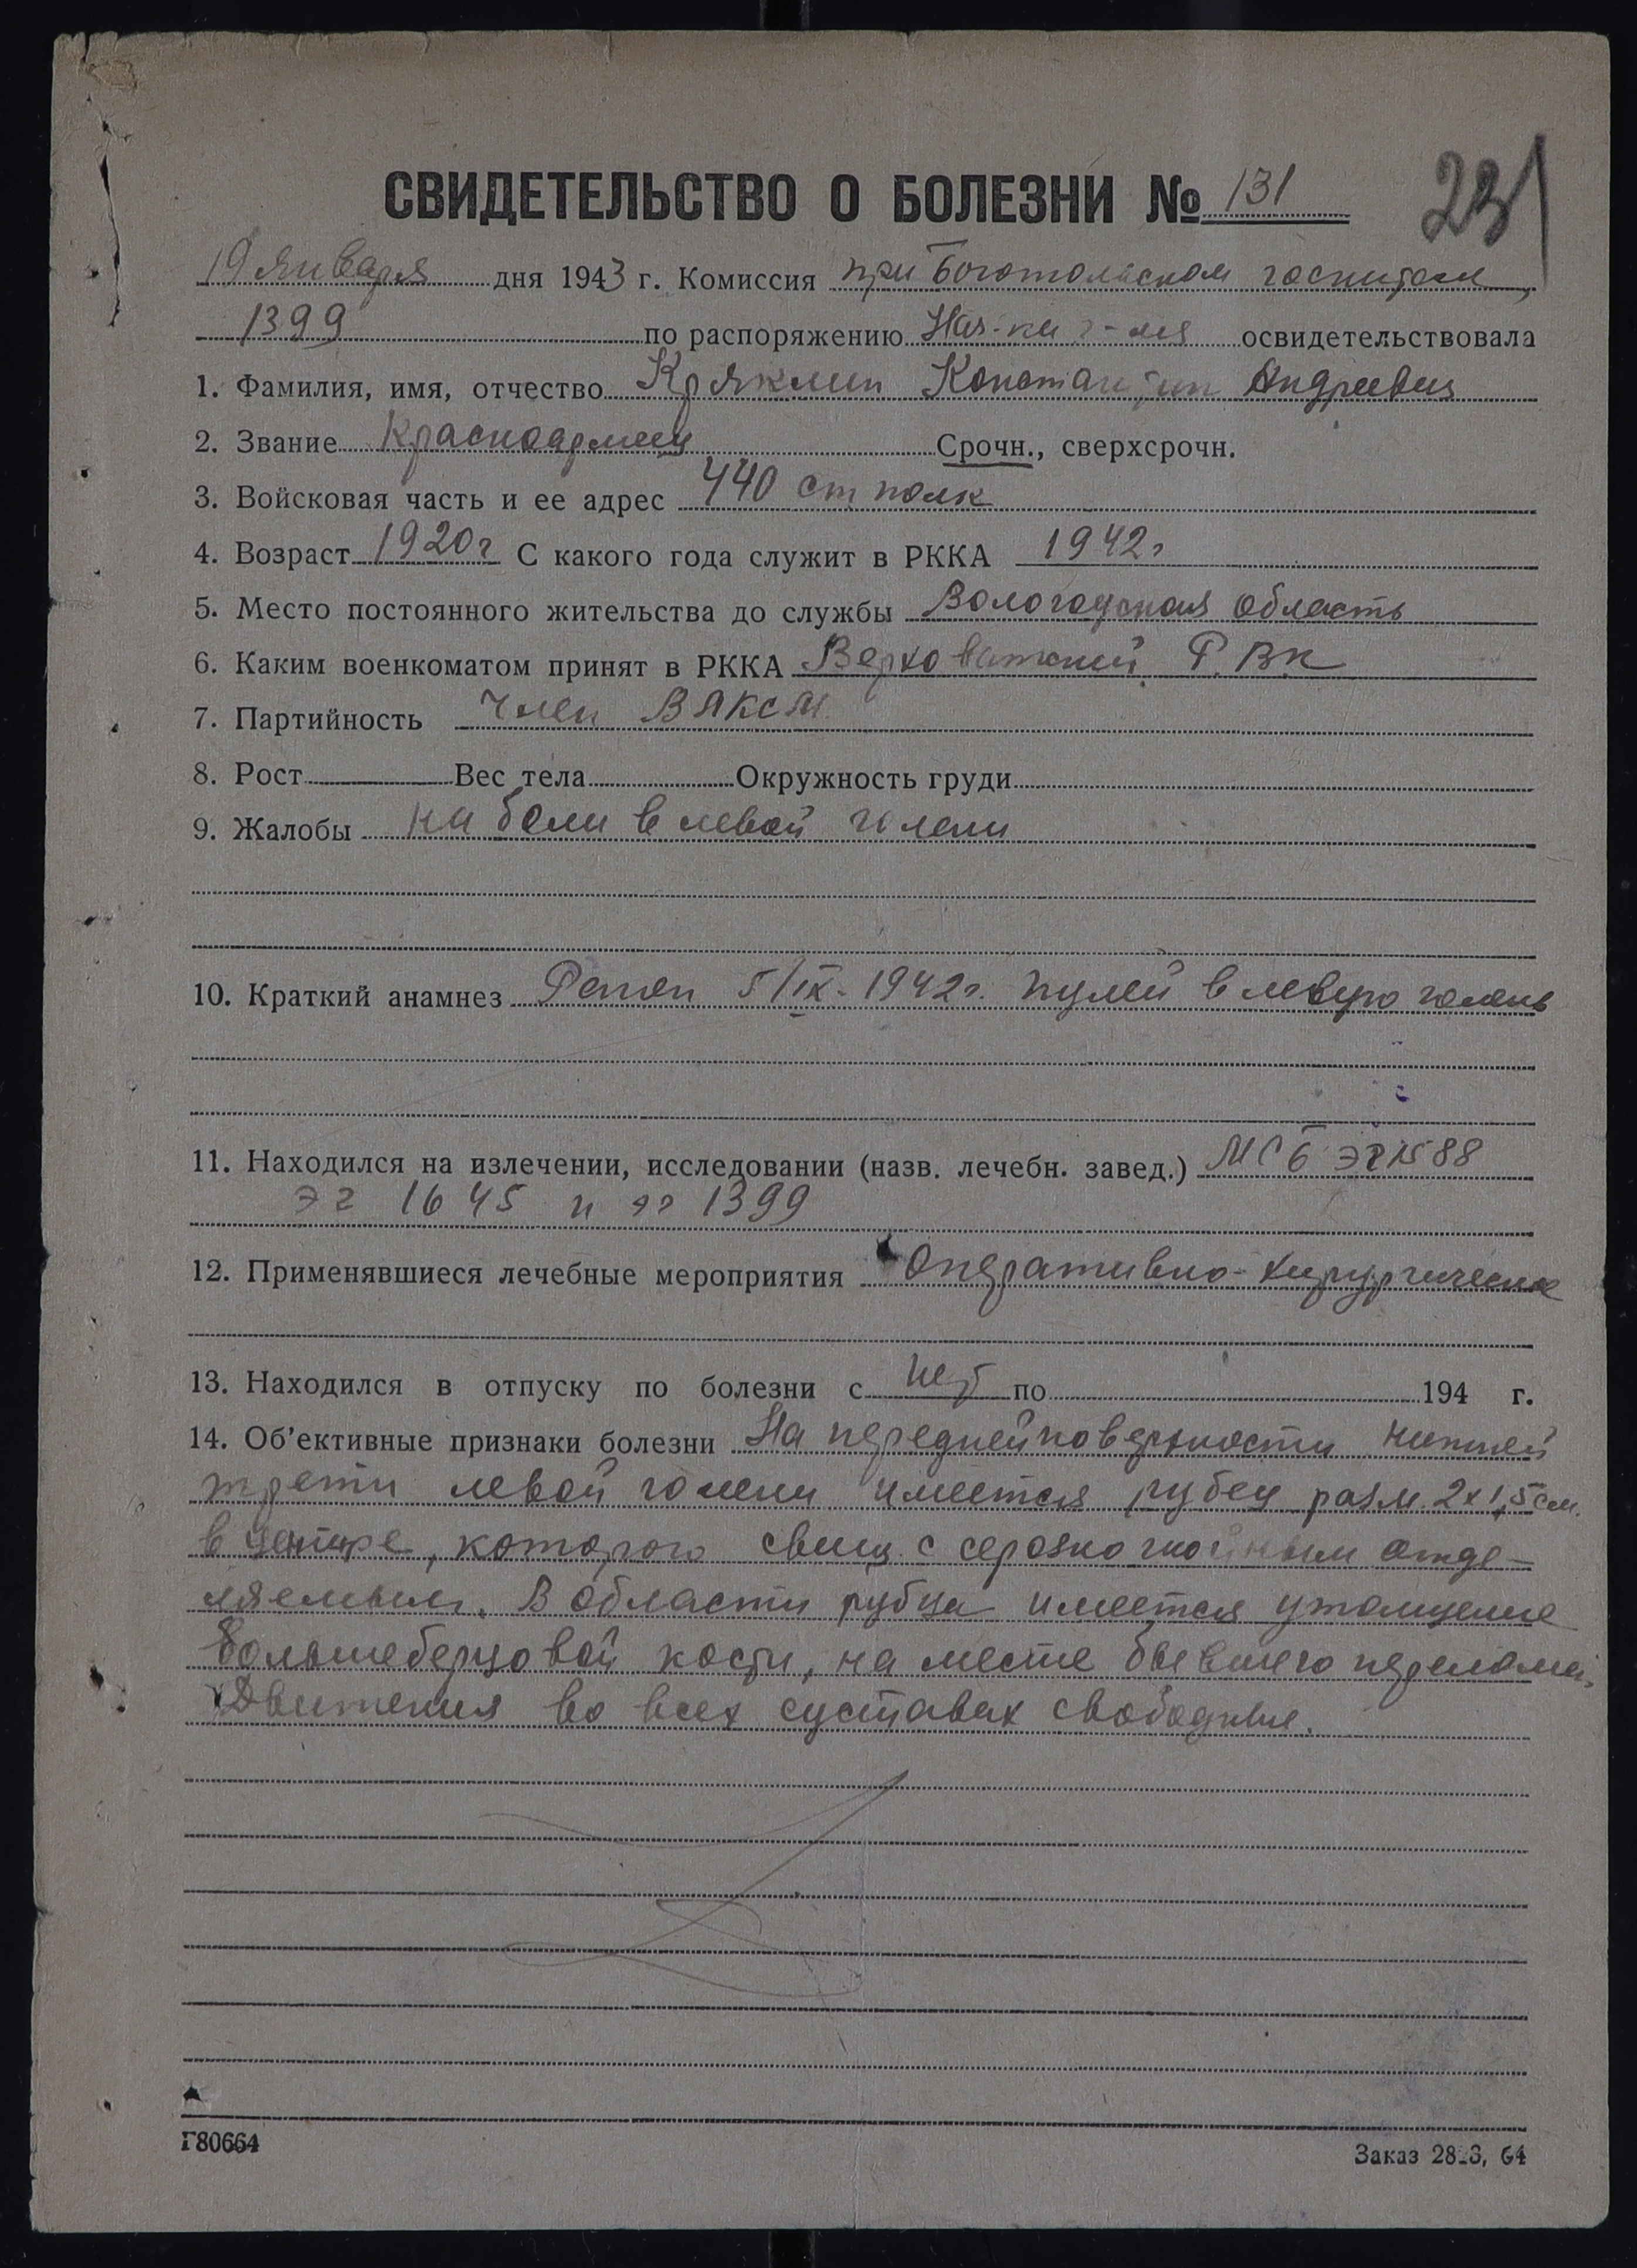 СВИДЕТЕЛЬСТВО О БОЛЕЗНИ № 131
231
19 Января дня 1943 г. Комиссия при Боготольском госпитале,
1399 по распоряжению Нач-ка г-ля освидетельствовала
1. Фамилия, имя, отчество Кряжмин Константин Андреевич
2. Звание Красноармеец Срочн., сверхсрочн.
3. Войсковая часть и ее адрес 440 ст полк
4. Возраст 1920г С какого года служит в РККА 1942г
5. Место постоянного жительства до службы Вологодская область
6. Каким военкоматом принят в РККА Верховажский Р.В.К
7. Партийность член ВЛКСМ
8. Рост Вес тела Окружность груди
9. Жалобы на боли в левой голени
10. Краткий анамнез Ранен 5/IX-1942г. пулей в левую голень
11. Находился на излечении, исследовании (назв. лечебн. завед.) МСБ ЭГ 1588
ЭГ 1645 и эг 1399
12. Применявшиеся лечебные мероприятия Оперативно-хирургические
13. Находился в отпуску по болезни с нет по 194 г.
14. Об'ективные признаки болезни На передней поверхности нижней
трети левой голени имеется рубец разм. 2х1,5 см.
в центре, которого свищ с серозно гнойным отде-
ляемым. В области рубца имеется утолщение
большеберцовой кости, на месте бывшего перелома.
Движения во всех суставах свободные.
Г80664
Заказ 64